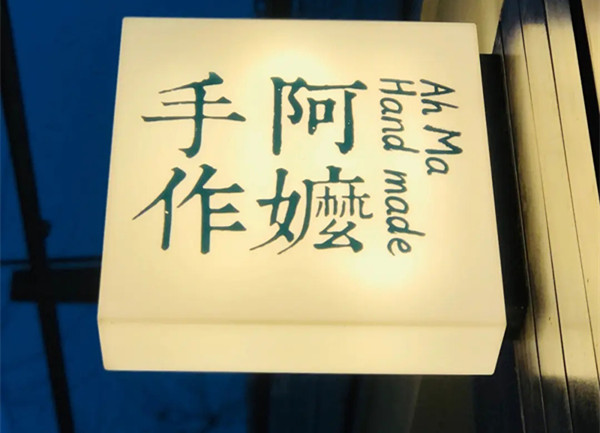 阿嬷
手作
Ah Ma
Hand made